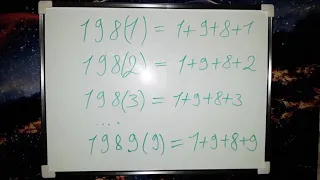 198(1) = 1+9+8+1
198(2) = 1+9+8+2
198(3) = 1+9+8+3
....
1989(9) = 1+9+8+9